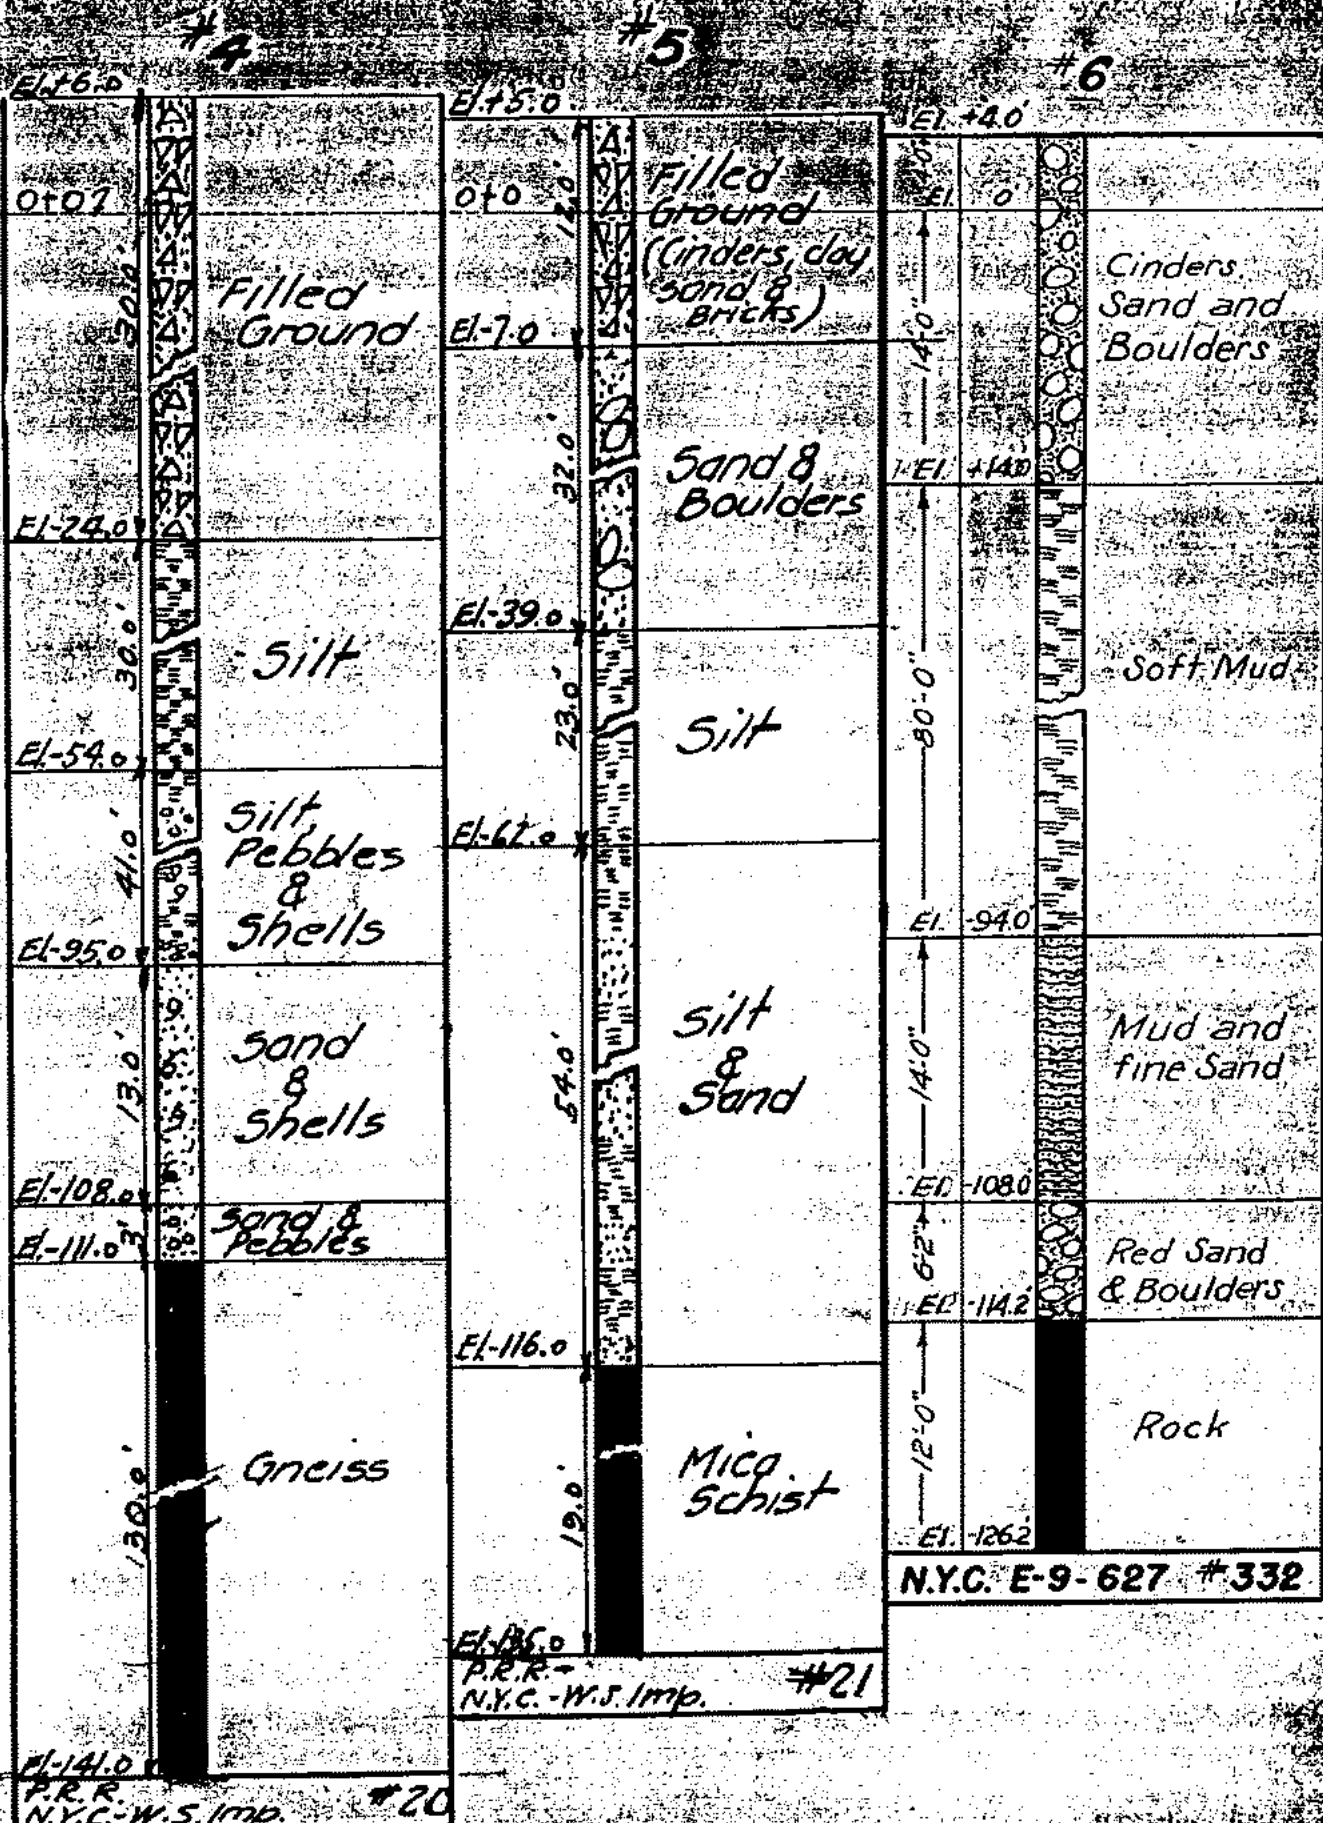 #4
El.+6.0
0+0?
30.0'
Filled
Ground
El.-24.0
30.0'
Silt
El.-54.0
41.0'
Silt,
Pebbles
&
Shells
El.-95.0
13.0'
Sand
&
Shells
El.-108.0
3'
Sand &
Pebbles
El.-111.0
130.0'
Gneiss
El.-141.0
P.R.R.
N.Y.C.-W.S. Imp. #20
#5
El.+5.0'
0+0
12.0'
Filled
Ground
(Cinders, clay
sand &
Bricks)
El.-7.0
32.0'
Sand &
Boulders
El.-39.0
23.0'
Silt
El.-62.0
54.0'
Silt
&
Sand
El.-116.0
19.0'
Mica
Schist
El.-135.0
P.R.R.-
N.Y.C.-W.S. Imp. #21
#6
El. +4.0'
El. 0'
14'-0"
Cinders,
Sand and
Boulders
El. +14.0
80'-0"
Soft Mud
El. -94.0
14'-0"
Mud and
fine Sand
El. -108.0
6'-2"
Red Sand
& Boulders
El. -114.2
12'-0"
Rock
El. -126.2
N.Y.C. E-9-627 #332